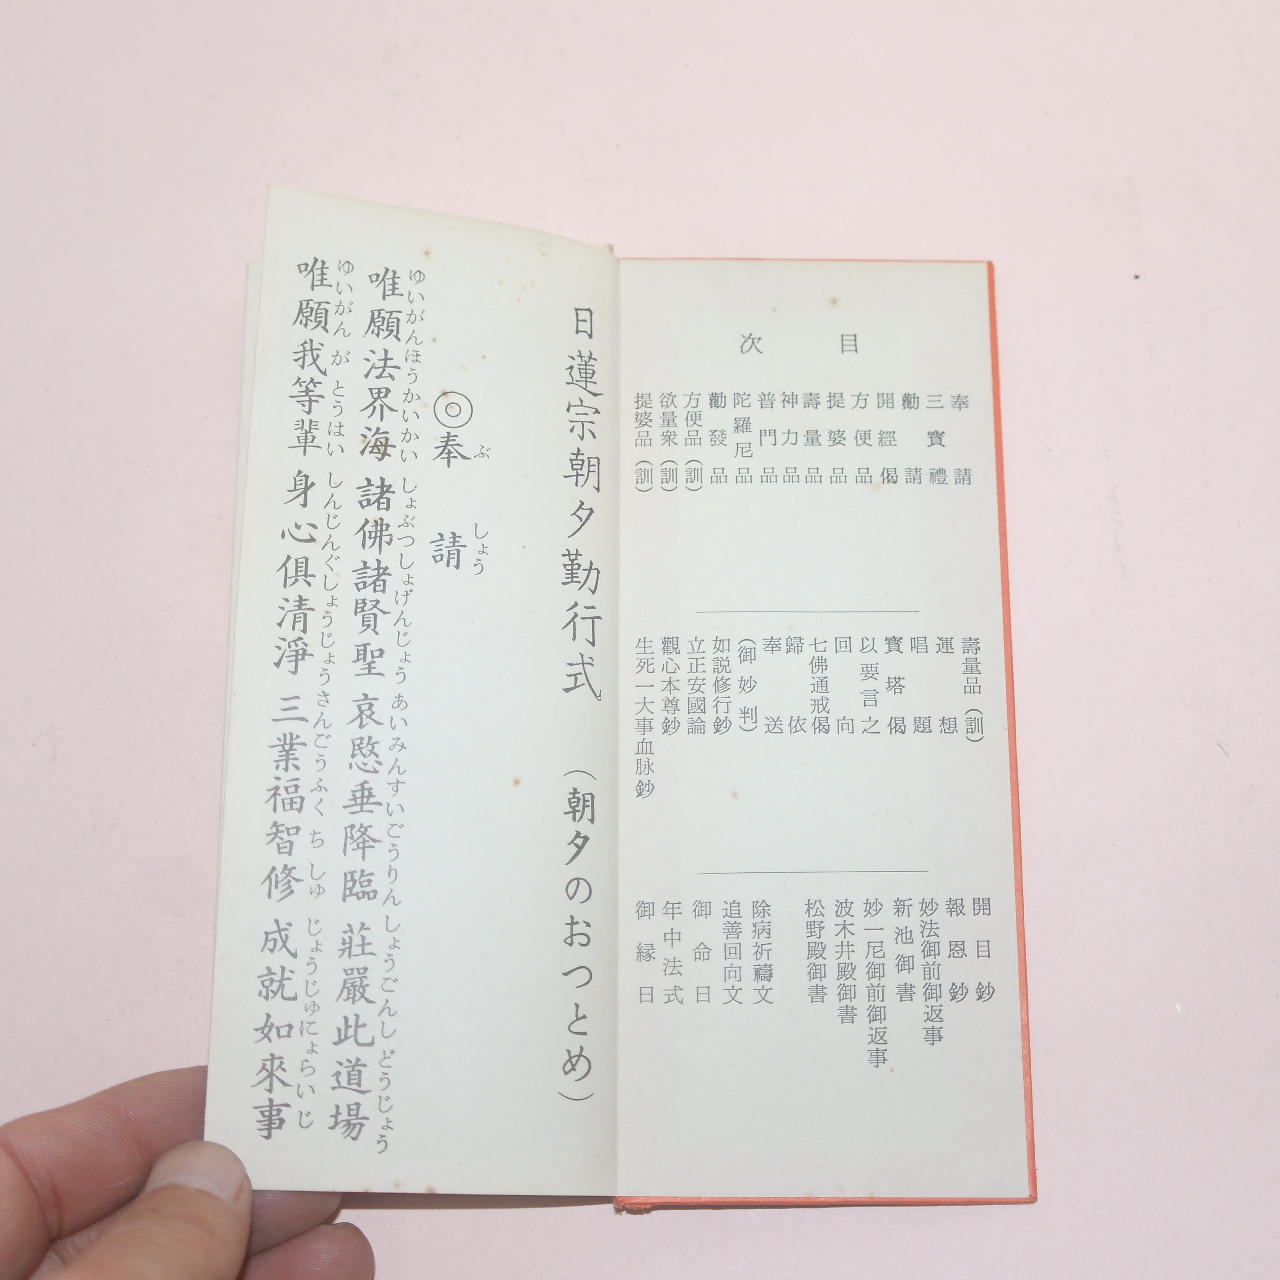 目次
奉請
三寳禮
勸請
開經偈
方便品
提婆品
壽量品
神力品
普門品
陀羅尼品
勸發品
方便品（訓）
欲量衆（訓）
提婆品（訓）
壽量品（訓）
運想
唱題
寳塔偈
以要言之
回向
七佛通戒偈
歸依
奉送
（御妙判）
如説修行鈔
立正安國論
觀心本尊鈔
生死一大事血脉鈔
開目鈔
報恩鈔
妙法御前御返事
新池御書
妙一尼御前御返事
波木井殿御書
松野殿御書
除病祈禱文
追善回向文
御命日
年中法式
御縁日
日蓮宗朝夕勤行式（朝夕のおつとめ）
ぶしょう
◎奉請
ゆいがんほうかいかいしょぶつしょげんじょうあいみんすいごうりんしょうごんしどうじょう
唯願法界海諸佛諸賢聖哀愍垂降臨莊嚴此道場
ゆいがんがとうはいしんじんぐしょうじょうさんごうふくちしゅじょうじゅにょらいじ
唯願我等輩身心俱清淨三業福智修成就如來事